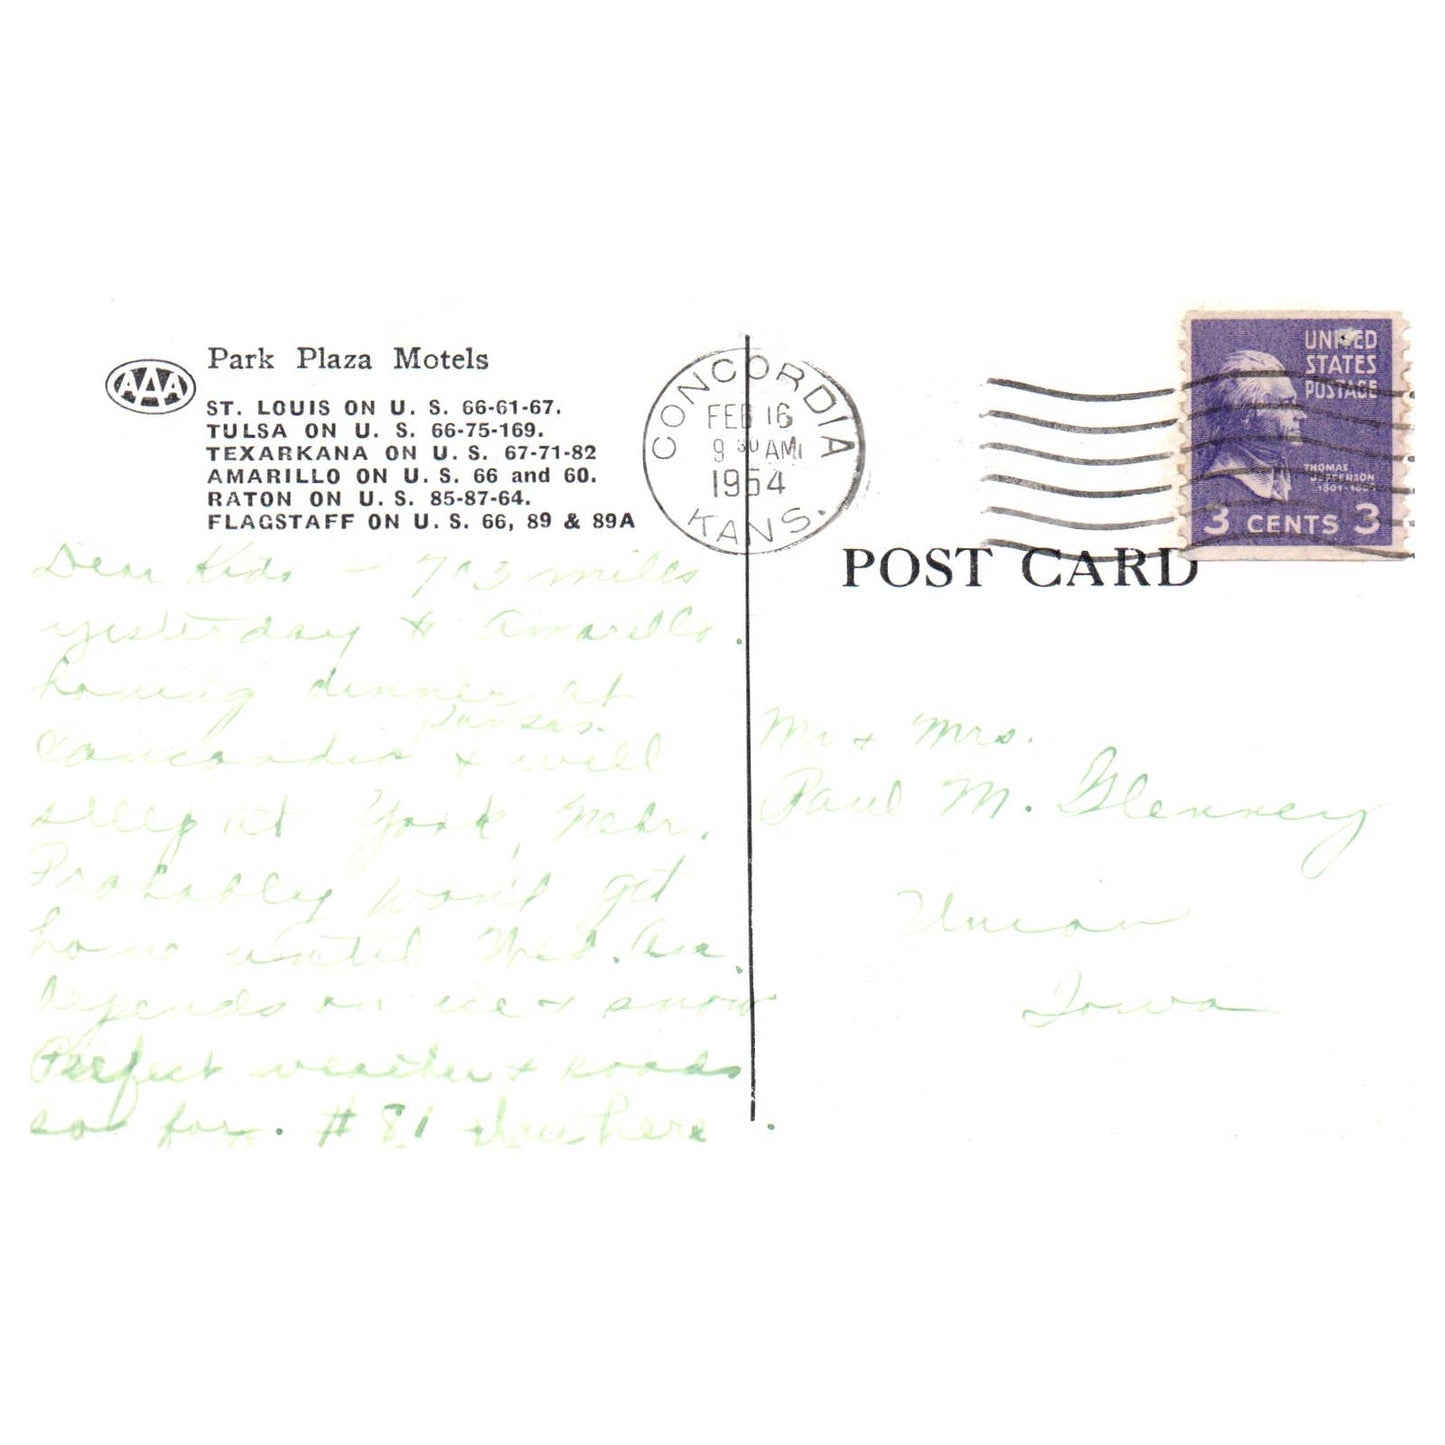 Park Plaza Motels
AAA
ST. LOUIS ON U. S. 66-61-67.
TULSA ON U. S. 66-75-169.
TEXARKANA ON U. S. 67-71-82
AMARILLO ON U. S. 66 and 60.
RATON ON U. S. 85-87-64.
FLAGSTAFF ON U. S. 66, 89 & 89A
CONCORDIA
FEB 16
9 30 AM
1954
KANS.
UNITED
STATES
POSTAGE
THOMAS
JEFFERSON
3 CENTS 3
POST CARD
Dear Kids - 703 miles
yesterday to Amarillo.
having dinner at
Kansas.
Concordia & will
sleep at York, Nebr.
Probably won't get
home until Wed.
depends on ice & snow
Perfect weather & roads
so far. # 81 thru here.
Mr & Mrs.
Paul M. Glenney
Union
Iowa